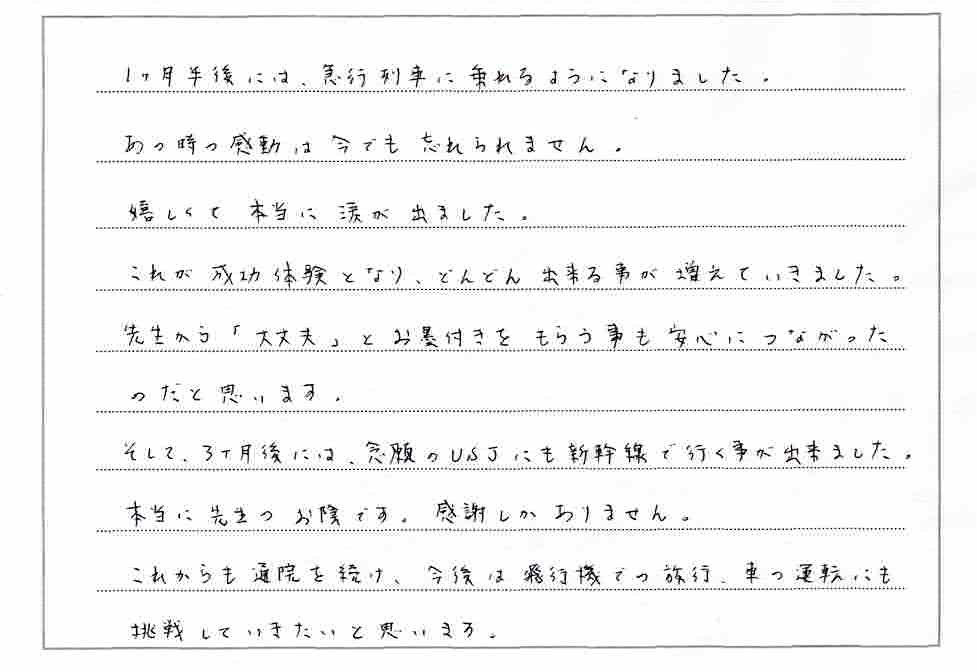 1ヶ月半後には、急行列車に乗れるようになりました。
あの時の感動は今でも忘れられません。
嬉しくて本当に涙が出ました。
これが成功体験となり、どんどん出来る事が増えていきました。
先生から「大丈夫」とお墨付きをもらう事も安心につながった
のだと思います。
そして、3ヶ月後には、念願のUSJにも新幹線で行く事が出来ました。
本当に先生のお陰です。感謝しかありません。
これからも通院を続け、今後は飛行機での旅行、車の運転にも
挑戦していきたいと思います。